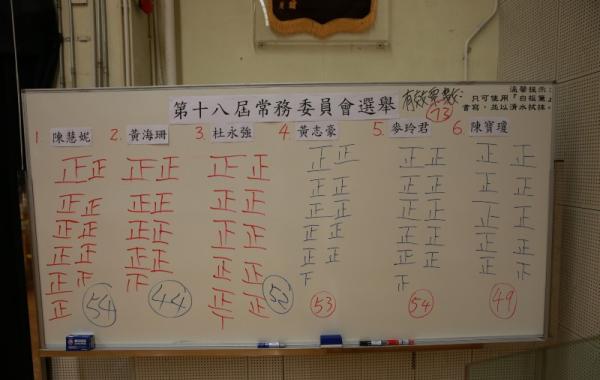 第十八屆常務委員會選舉
有效票數：
73
溫馨提示：
只可使用『白板筆』
書寫，並以清水拭抹。
1. 陳慧妮 2. 黃海珊 3. 杜永強 4. 黃志豪 5. 麥玲君 6. 陳寶瓊
正正 正正 正正 正正 正正 正正
正正 正正 正正 正正 正正 正正
正正 正正 正正 正正 正正 正正
正正 正正 正正 正正 正正 正正
正 正 正正 正正
正
54 44 52 53 54 49